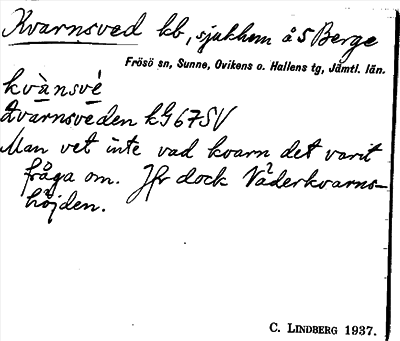 Kvarnsved kb, sjukhem å S Berge
Frösö sn, Sunne, Ovikens o. Hallens tg, Jämtl. län.
kvànsvé
Qvarnsveden kG67SV
Man vet inte vad kvarn det varit
fråga om. Jfr dock Väderkvarns-
höjden.
C. LINDBERG 1937.